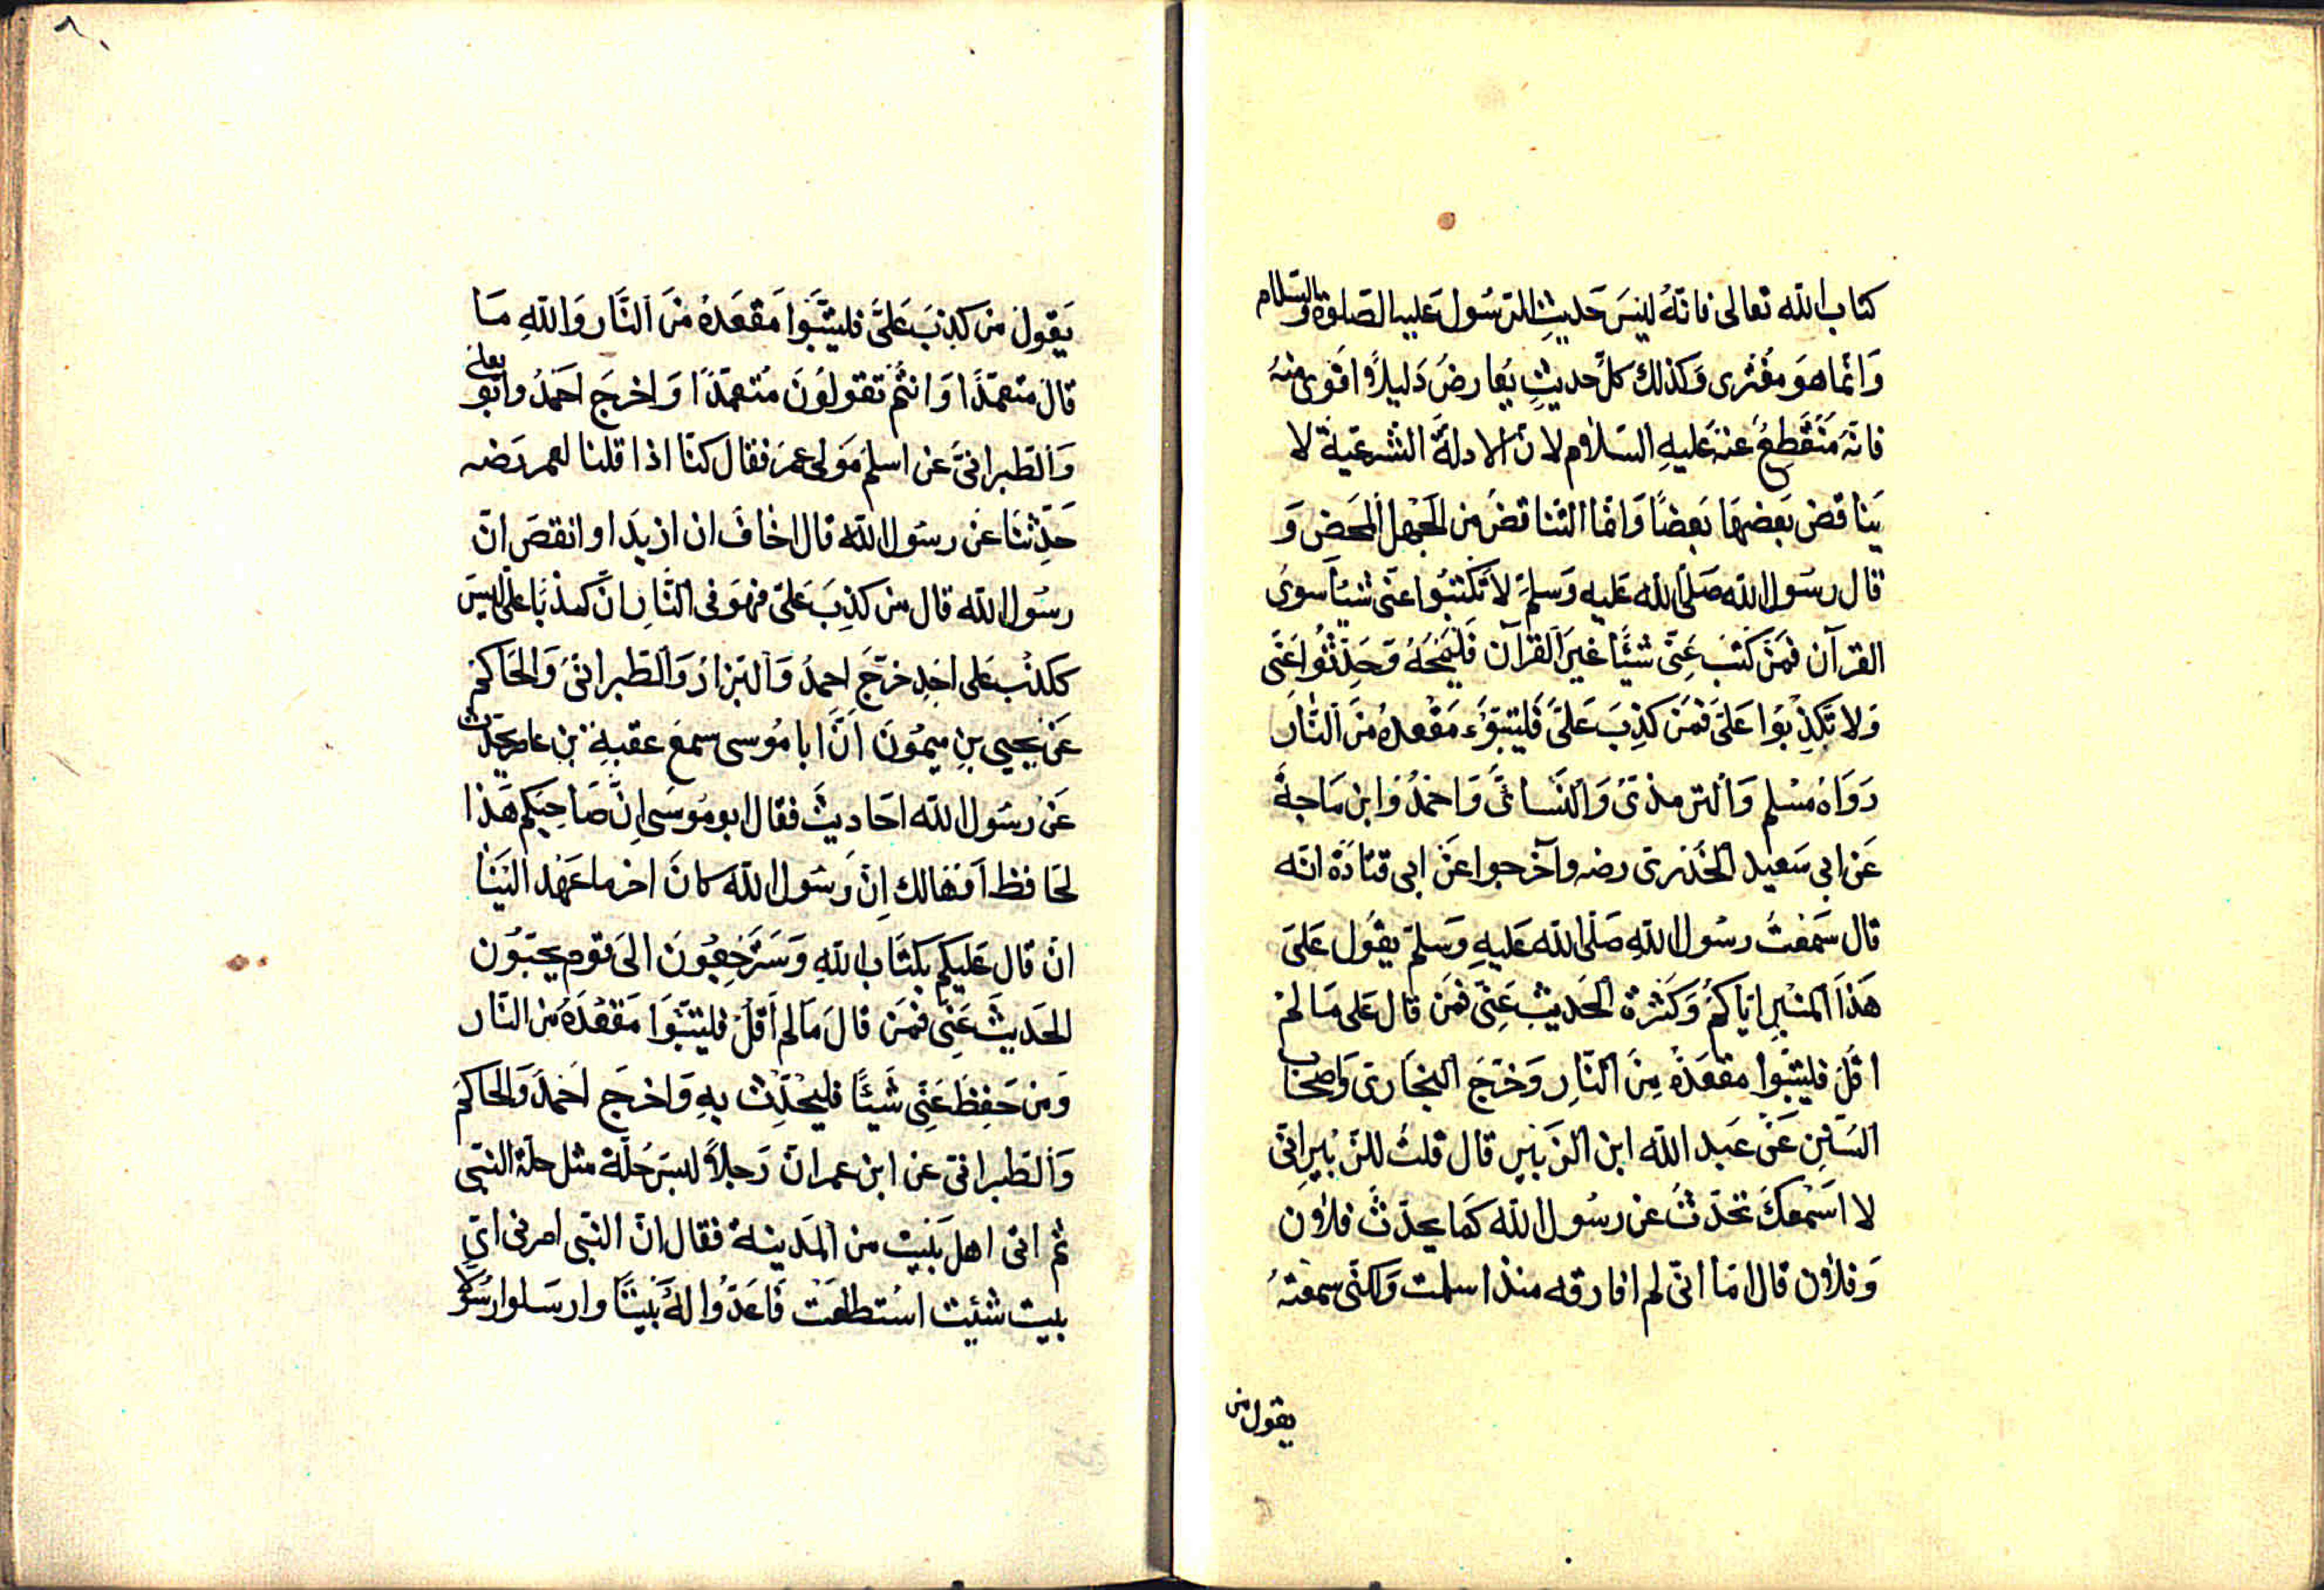 كتاب الله تعالى فانّهُ لَيسَ حَديثِ للرّسُول عَليه الصّلوة والسّلام
وَانّما هوَ مفُترى وَكذلك كلّ حديثٍ يُعارضُ دَليلاً اقوى منهُ
فانّه مُنقطِعُ عنه عَليهِ السّلام لانّ الادلّة الشّرعيّة لا
يَناقض بَعضهَا بَعضًا وَامّا التّناقض من الجَهل المحَض وَ
قال رسُول الله صَلّى الله عَليه وَسلم لاَ تكتبُوا عنّى شيئًا سوى
القرآن فمَن كتبَ عَنّى شيئًا غيرَ القرآن فليَمحهُ وَحَدِّثُوا عَنّى
وَلا تكذِبُوا عَلىّ فمَن كذِبَ عَلىّ فليتبوّء مَقعدهُ منَ النّار
رَوَاهُ مسلم وَالترمذىّ وَالنّسائىّ وَاحمدُ وَابن مَاجة
عَن ابى سَعيد الخدرى رضه وآخرجوا عَن ابى قتادَة انّه
قال سَمعتُ رسُول اللهِ صَلّى الله عَليهِ وَسلم يقُول عَلىَ
هَذا المنبرِ ايّاكمُ وَكثرة الحَديث عَنّى فمَن قال عَلى مَا لمْ
اقل فليتبوا مقعَدهُ مِنَ النّارِ وَخرّجَ البخارى وَاصحاب
السّنِن عَن عَبد الله ابن الزّبَير قال قلتُ للزّبيرِ انّى
لا اَسمعكَ تحدّثُ عن رسُول الله كمَا يحدّثُ فلاَن
وَفلاَن قال امَا انّى لم افارقه منذ اسلمت وَلكنّى سمعتهُ
يقول من
٨
يَقول من كذبَ عَلىّ فليتَبوا مَقعَدهُ منَ النّار وَاللهِ مَا
قالَ متعمّدًا وَانتُم تقولوُنَ مُتعمّدًا وَاخرجَ احمَدُ وابو يعلى
وَالطبرانىّ عن اسلم مَولى عمرَ فقال كنّا اذا قلنا لعمر رَضه
حَدِّثنَا عَن رسُول الله قال اخَافَ ان ازيدَ او انقصَ انّ
رسُول الله قال من كذِبَ عَلىّ فهوَ فى النّارِ انّ كذبًا علىّ ليسَ
ككذبِ عَلى احدِ خرّجَ احمدُ وَالبزارُ وَالطّبرانىّ وَالحَاكم
عَن يحيى بنِ ميمُونَ انّ ابا مُوسى سمعَ عقبهِ بن عامر يحدّث
عَن رسُول الله احَاديثَ فقال ابو مُوسَى اِنّ صَاحِبَكم هَذا
لحَافظ اَو هَالك اِنّ رَسُول الله كانَ اخر ما عَهدَ الَينَا
انْ قال عَليكم بكتَاب اللهِ وَسَترجعُونَ الىَ قوم يحبّوُن
الحَديثَ عَنّى فمَن قالَ مَا لم اَقل فليتبّوا مَقعَدَهُ من النّار
وَمن حَفِظَ عَنّى شَيئًا فليُحدِّث بهِ وَاخرجَ احَمدَ وَالحَاكم
وَالطبرانىّ عن ابن عمر انّ رَجلاً لبسَ حُلّة مثل حلّة النّبى
ثم اتى اهلَ بَيت من المَدينة فقال انّ النّبى امرنى اىّ
بيت شئيت استطلعَت فَاَعَدّوا لهُ بَيتًا وارسَلوا رسُولا